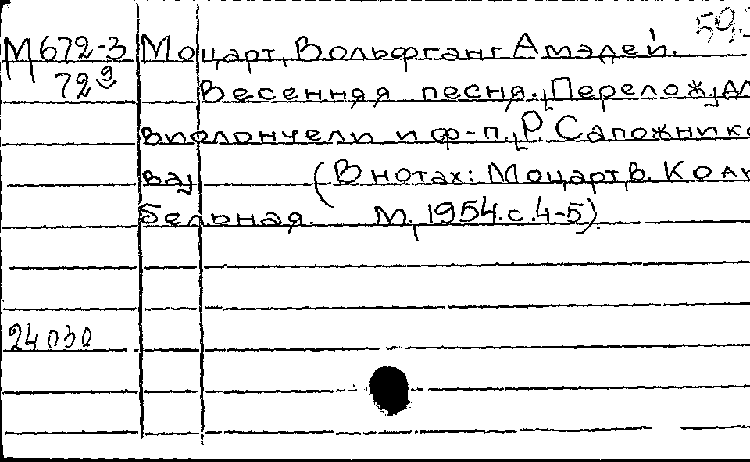 59.
М 672-3 Моцарт, Вольфганг Амадей.
72 Весенняя песня. [Перелож. дл
виолончели и ф-п. Р. Сапожнико
ва] (В нотах: Моцарт, В. Колы
бельная. М., 1954. с. 4-5)
24030